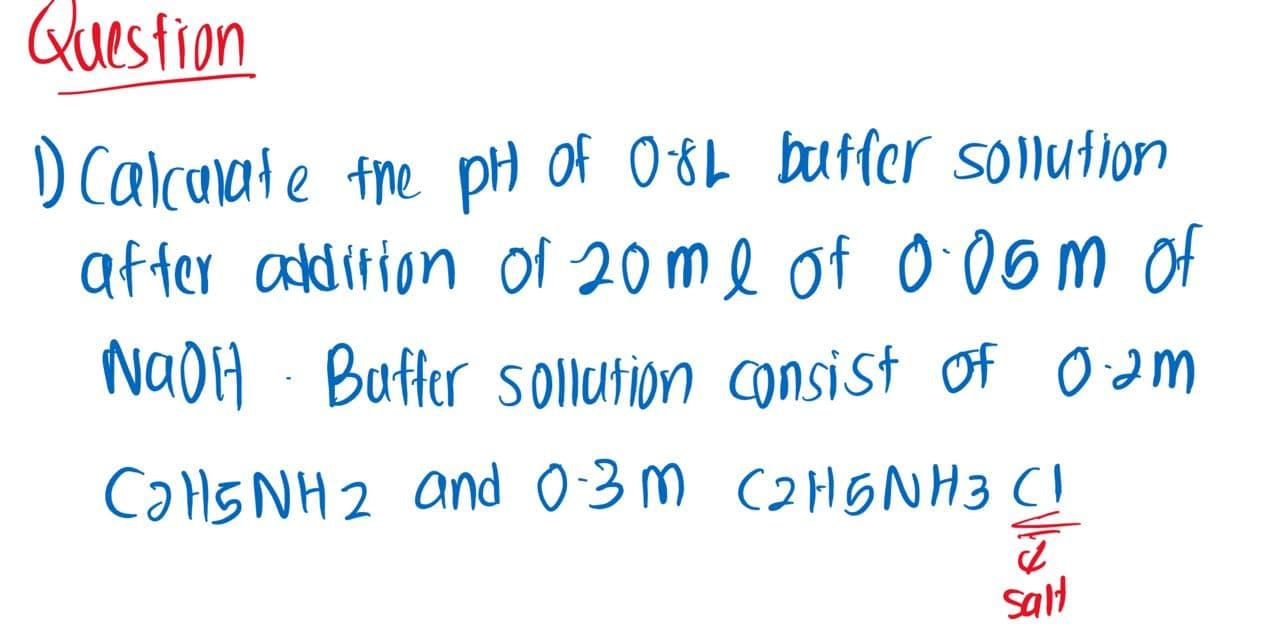 Question
1) Calculate the pH of 0.8L buffer sollution
after addition of 20ml of 0.05m of
NaOH. Buffer sollution consist of 0.2m
C2H5NH2 and 0.3m C2H5NH3Cl
salt